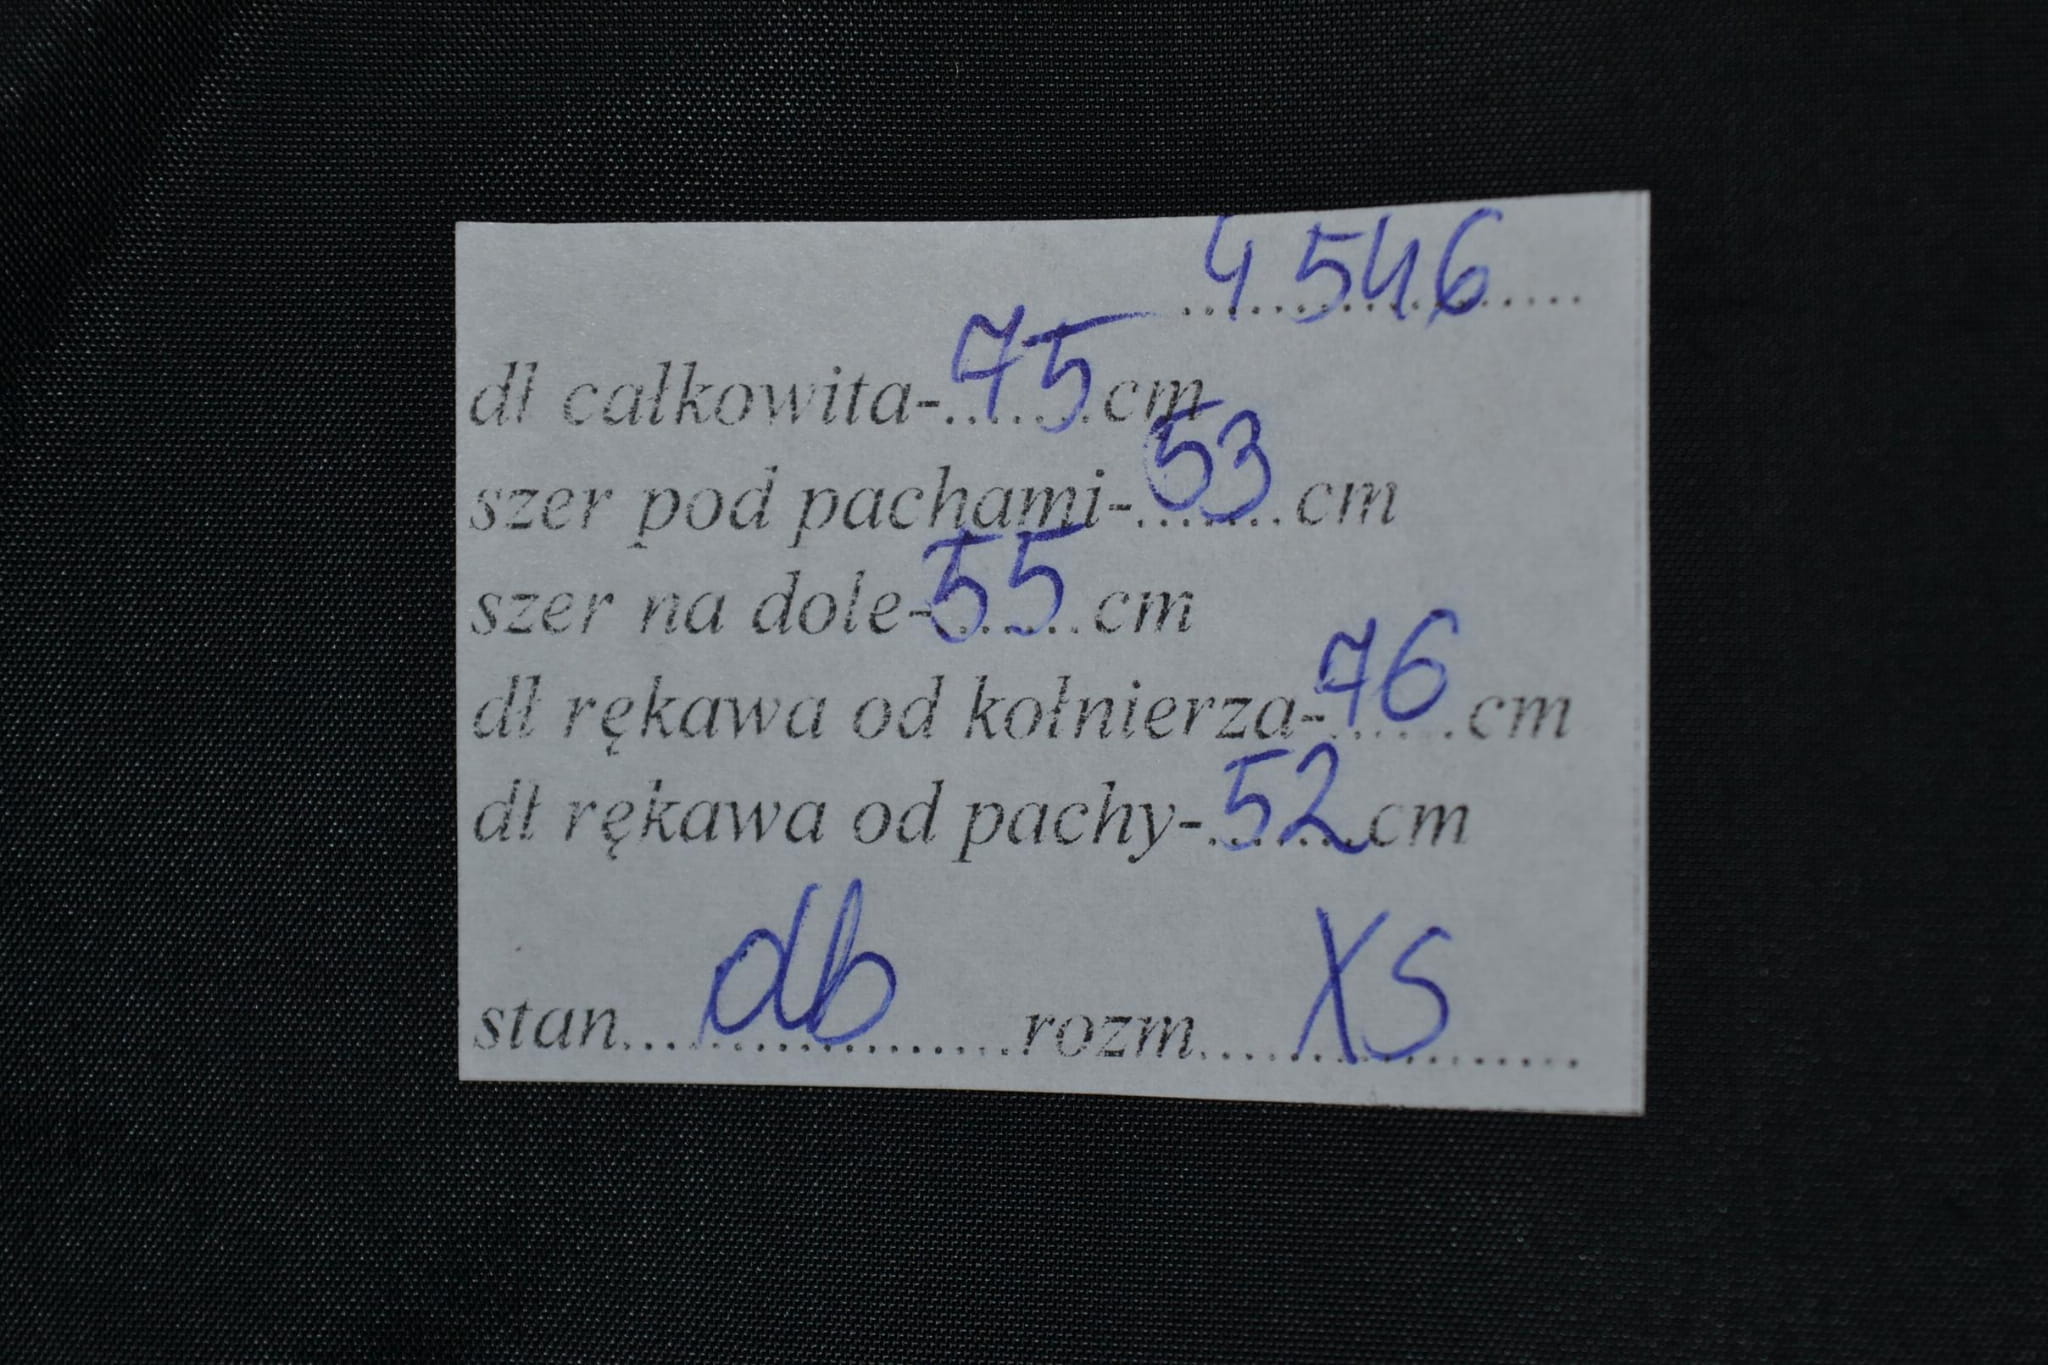 4546
dł całkowita-75cm
szer pod pachami-53cm
szer na dole-55cm
dł rękawa od kołnierza-76cm
dł rękawa od pachy-52cm
stan...db...rozm...XS...